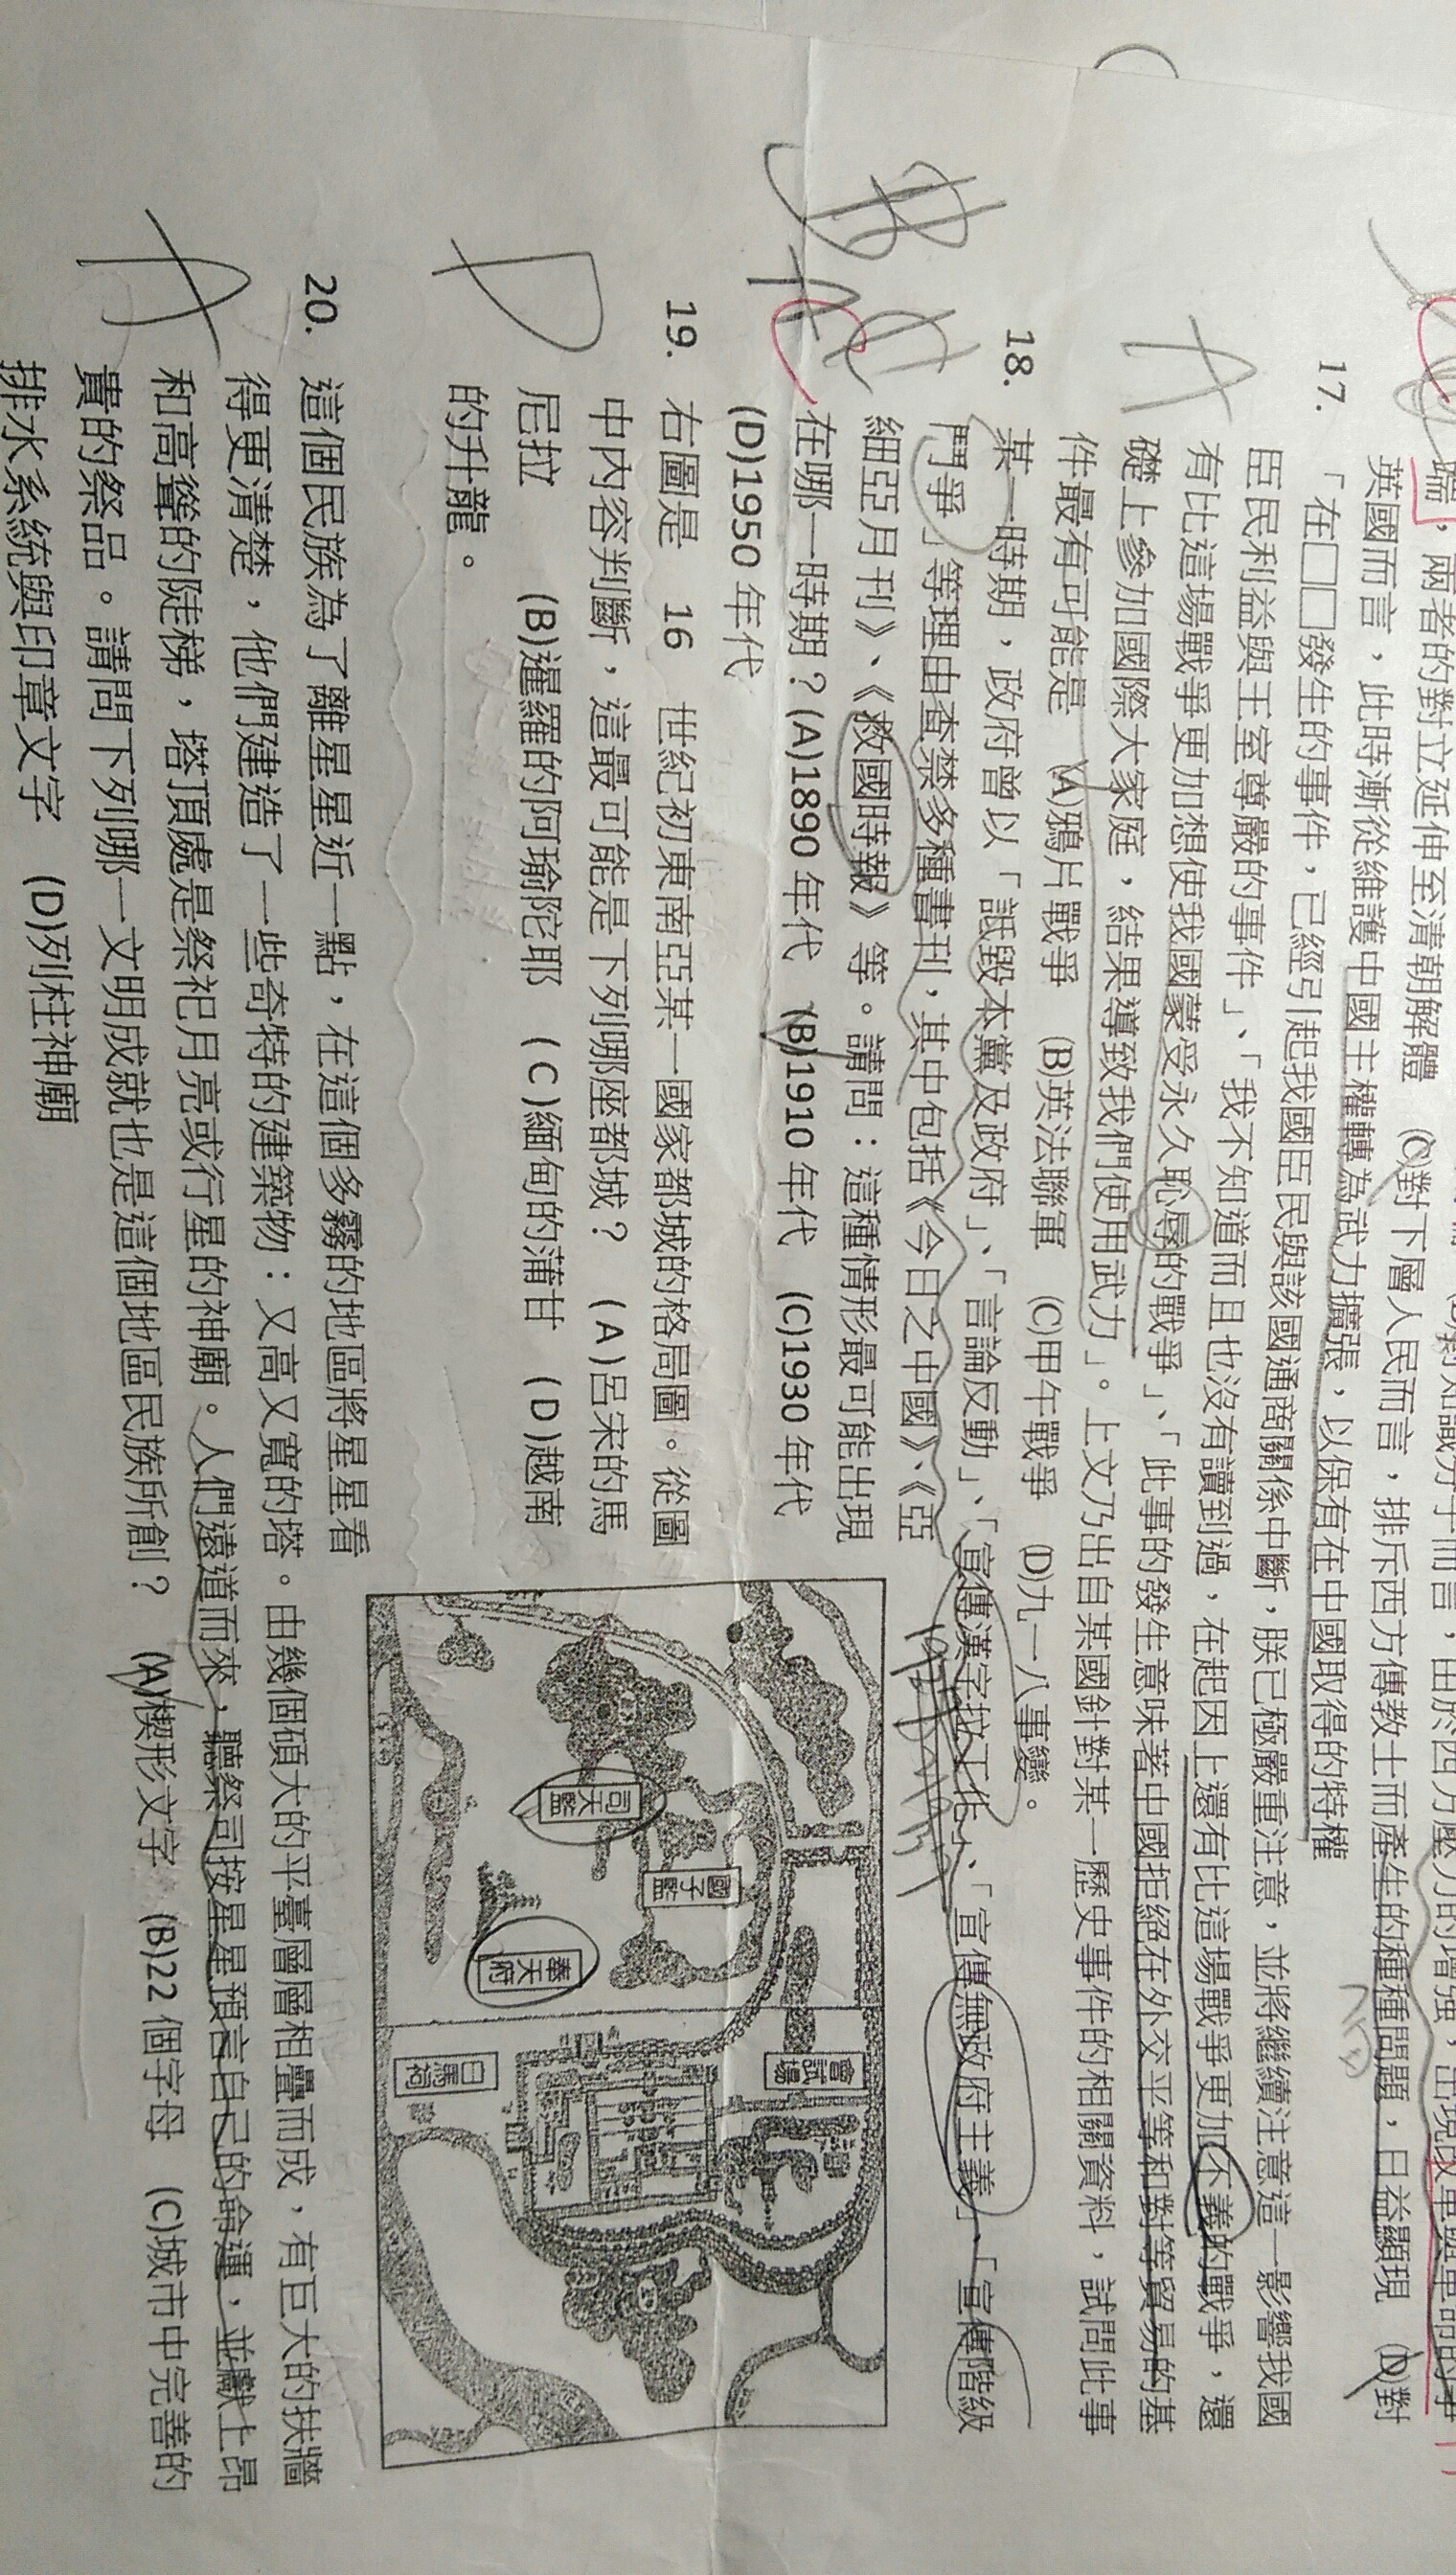 端，兩者的對立延伸至清朝解體 (C)對下層人民而言，排斥西方傳教士而產生的種種問題，日益顯現 (D)對
英國而言，此時漸從維護中國主權轉為武力擴張，以保有在中國取得的特權
17. 「在□□發生的事件，已經引起我國臣民與該國通商關係中斷，朕已極嚴重注意，並將繼續注意這一影響我國
臣民利益與王室尊嚴的事件」、「我不知道而且也沒有讀到過，在起因上還有比這場戰爭更加不義的戰爭，還
有比這場戰爭更加想使我國蒙受永久恥辱的戰爭」、「此事的發生意味著中國拒絕在外交平等和對等貿易的基
礎上參加國際大家庭，結果導致我們使用武力」。上文乃出自某國針對某一歷史事件的相關資料，試問此事
件最有可能是 (A)鴉片戰爭 (B)英法聯軍 (C)甲午戰爭 (D)九一八事變。
A
18. 某一時期，政府曾以「詆毀本黨及政府」、「言論反動」、「宣傳漢字拉丁化」、「宣傳無政府主義」、「宣傳階級
鬥爭」等理由查禁多種書刊，其中包括《今日之中國》、《亞
細亞月刊》、《救國時報》等。請問：這種情形最可能出現
在哪一時期？(A)1890 年代 (B)1910 年代 (C)1930 年代
(D)1950 年代
19. 右圖是 16 世紀初東南亞某一國家都城的格局圖。從圖
中內容判斷，這最可能是下列哪座都城？ (A)呂宋的馬
尼拉 (B)暹羅的阿瑜陀耶 (C)緬甸的蒲甘 (D)越南
的升龍。
D
司天監
國子監
奉天府
會試場
白馬祠
20. 這個民族為了離星星近一點，在這個多霧的地區將星星看
得更清楚，他們建造了一些奇特的建築物：又高又寬的塔。由幾個碩大的平臺層層相疊而成，有巨大的扶牆
和高聳的陡梯，塔頂處是祭祀月亮或行星的神廟。人們遠道而來，聽祭司按星星預言自己的命運，並獻上昂
貴的祭品。請問下列哪一文明成就也是這個地區民族所創？ (A)楔形文字 (B)22 個字母 (C)城市中完善的
排水系統與印章文字 (D)列柱神廟
A